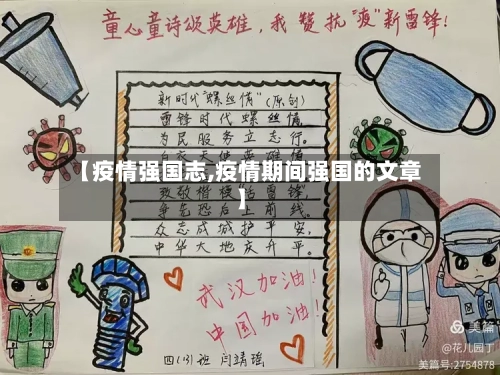 童心童诗颂英雄，我赞抗“疫”新雷锋！
新时代“螺丝情”（原创）
雷锋时代螺丝情，
为民服务立志行。
白衣天使英雄
【疫情强国志,疫情期间强国的文章
】
致敬楷模 雷锋
争先恐后上前线。
众志成城护平安，
中华大地庆升平。
武汉加油！
中国加油！
四(13)班 闫靖瑶
美篇
@花儿园丁
美篇号:2754878